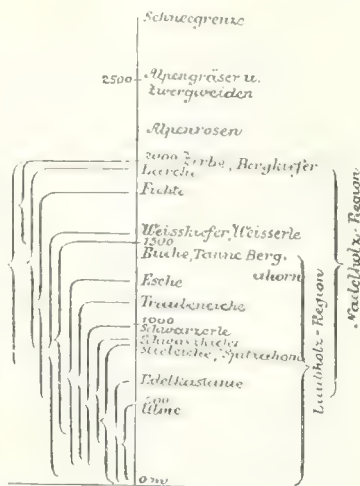 Schneegrenze
2500
Alpengräser u.
Zwergweiden
Alpenrosen
2000 Zirbe, Bergkiefer
Lärche
Fichte
Weisskiefer, Weisserle
1500
Buche, Tanne, Berg-
ahorn
Esche
Traubeneiche
1000
Schwarzerle
Schwarzkiefer
Stieleiche, Spitzahorn
Edelkastanie
500
Ulme
0 m
Laubholz-Region
Nadelholz-Region